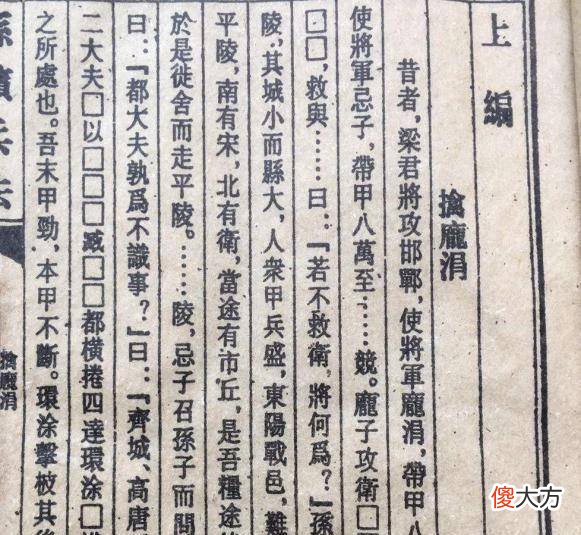 上編
擒龐涓
昔者，梁君將攻邯鄲，使將軍龐涓，帶甲八
使將軍忌子，帶甲八萬至……競。龐子攻衛□
□□，救與……曰：「若不救衛，將何爲？」孫
陵，其城小而縣大，人衆甲兵盛，東陽戰邑，難
平陵，南有宋，北有衛，當途有市丘，是吾糧途
於是徙舍而走平陵。……陵，忌子召孫子而問
曰：「都大夫孰爲不識事？」曰：「齊城、高唐
二大夫□以□□□臧□□都橫捲四達環涂□
之所處也。吾末甲勁，本甲不斷。環涂擊柀其後
孫臏兵法
擒龐涓
傻大方